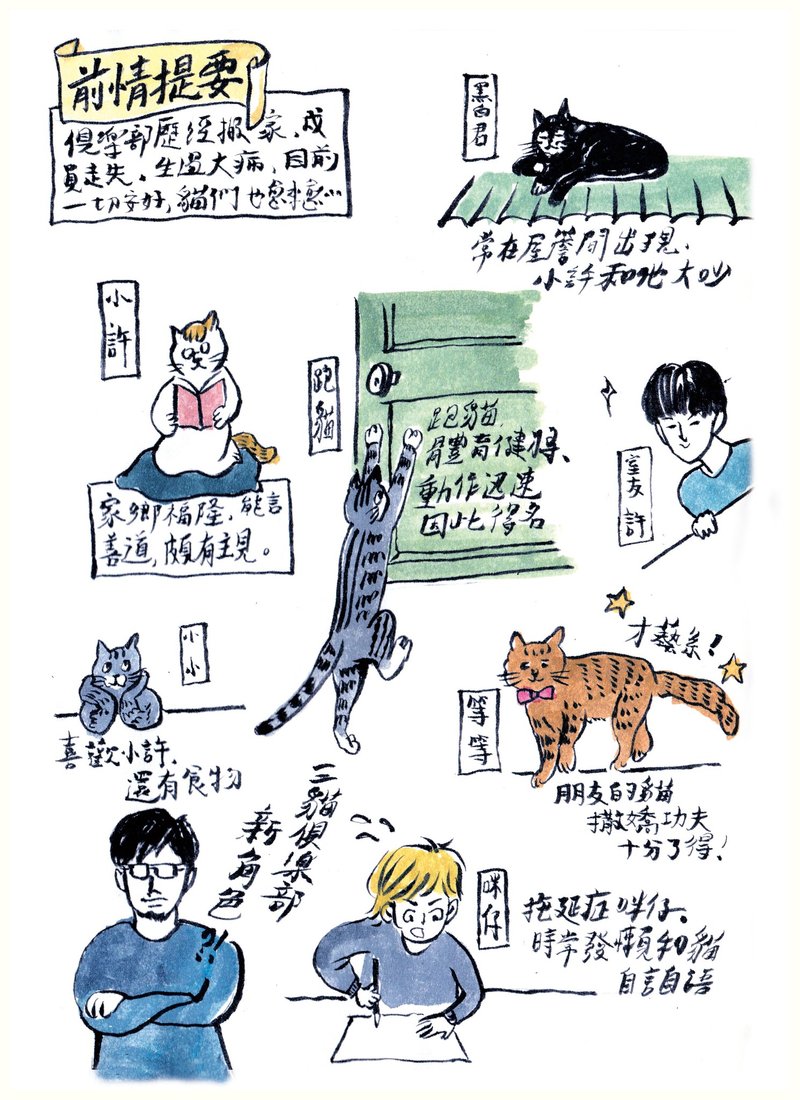 前情提要
俱樂部歷經搬家、成
員走失、生過大病，目前
一切安好，貓們也愈來愈
黑白君
常在屋簷間出現、
小許和牠大吵
小許
家鄉福隆、能言
善道，頗有主見。
跑貓
跑貓
體育健將、
動作迅速
因此得名
室友 許
小小
喜歡小許、
還有食物
才藝系！
等等
朋友的貓
撒嬌功夫
十分了得！
三貓俱樂部
新角色
?!
咪仔
拖延症咪仔、
時常發懶和貓
自言自語